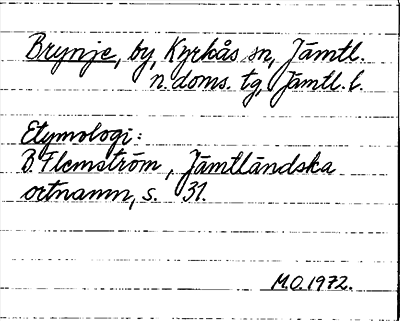 Brynje, by, Kyrkås sn, Jämtl.
n. doms. tg, Jämtl. l.
Etymologi:
B Flemström, Jämtländska
ortnamn, s. 31.
M.O. 1972.